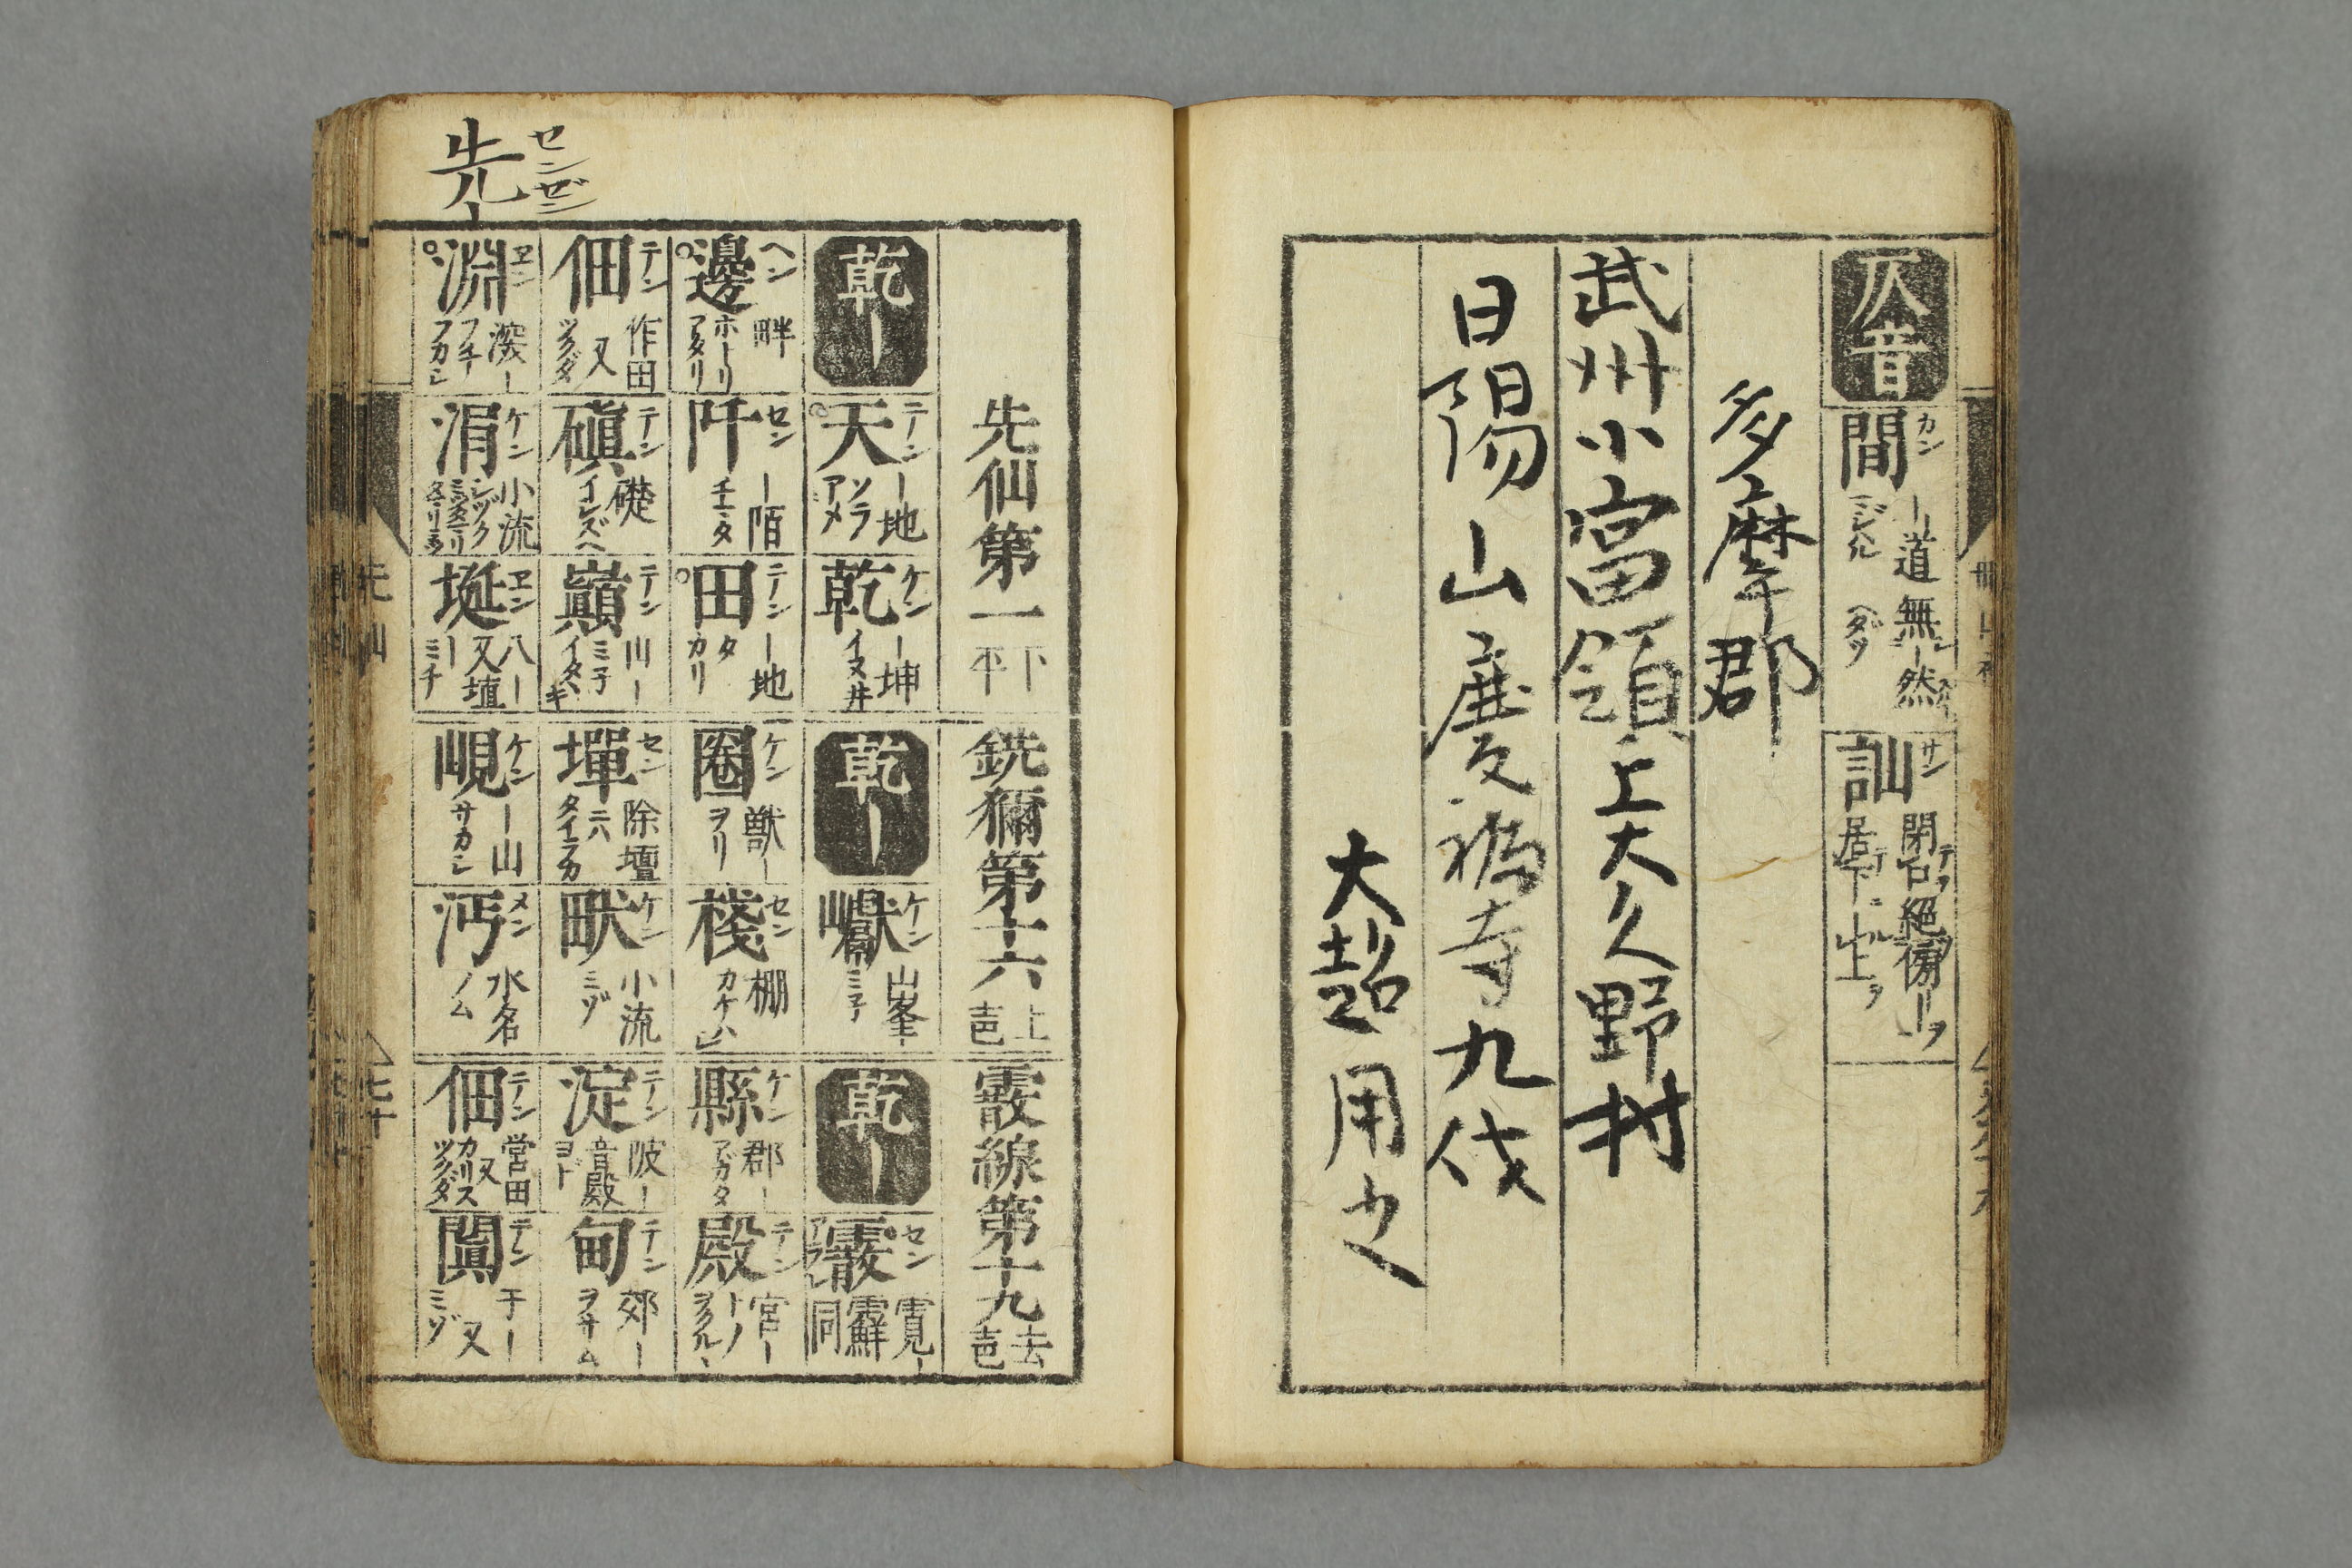 仄音
間 カン ー道 無ー然 ヘダツ
訕 サン 閉口絕傍ーヲ 居下ニ訕上ヲ
多摩郡
武州小宮領上大久野村
日陽山慶福寺九代
大超用之
先 センゼン
先仙第一 下平
銑獮第十六 上声
霰線第十九 去声
乾ー
天 テン ー地 ソラ アメ
乾 ケン ー坤 イヌ井
乾ー
巘 ケン 山峯ー ミ子
乾ー
霰 セン アラレ 霓ー 霹同
邊 ヘン 畔 ホーリ アタリ
阡 セン ー陌 チマタ
田 テン ー地 タ カリ
圈 ケン 獣ー ヲリ
棧 セン 棚 カケハシ
縣 ケン 郡ー アガタ
殿 テン 宮ー トノ ヲクル
佃 テン 作田 又 ツクダ
磌 テン 礎 イシズヘ
巔 テン 山ー ミ子 イタヾキ
墠 セン 除壇 タイラカ
畎 ケン 小流 ミゾ
淀 テン 波ー 音殿 ヨド
甸 テン 郊ー ヲサム
淵 ヱン 深ー フチ フカシ
涓 ケン 小流 シヅク
埏 ヱン 八ー 又埴ー ミチ
峴 ケン ー山 サカシ
沔 メン 水名 ノム
佃 テン 営田 又 カリス ツクダ
闐 テン 于ー 又 ミゾ
先仙